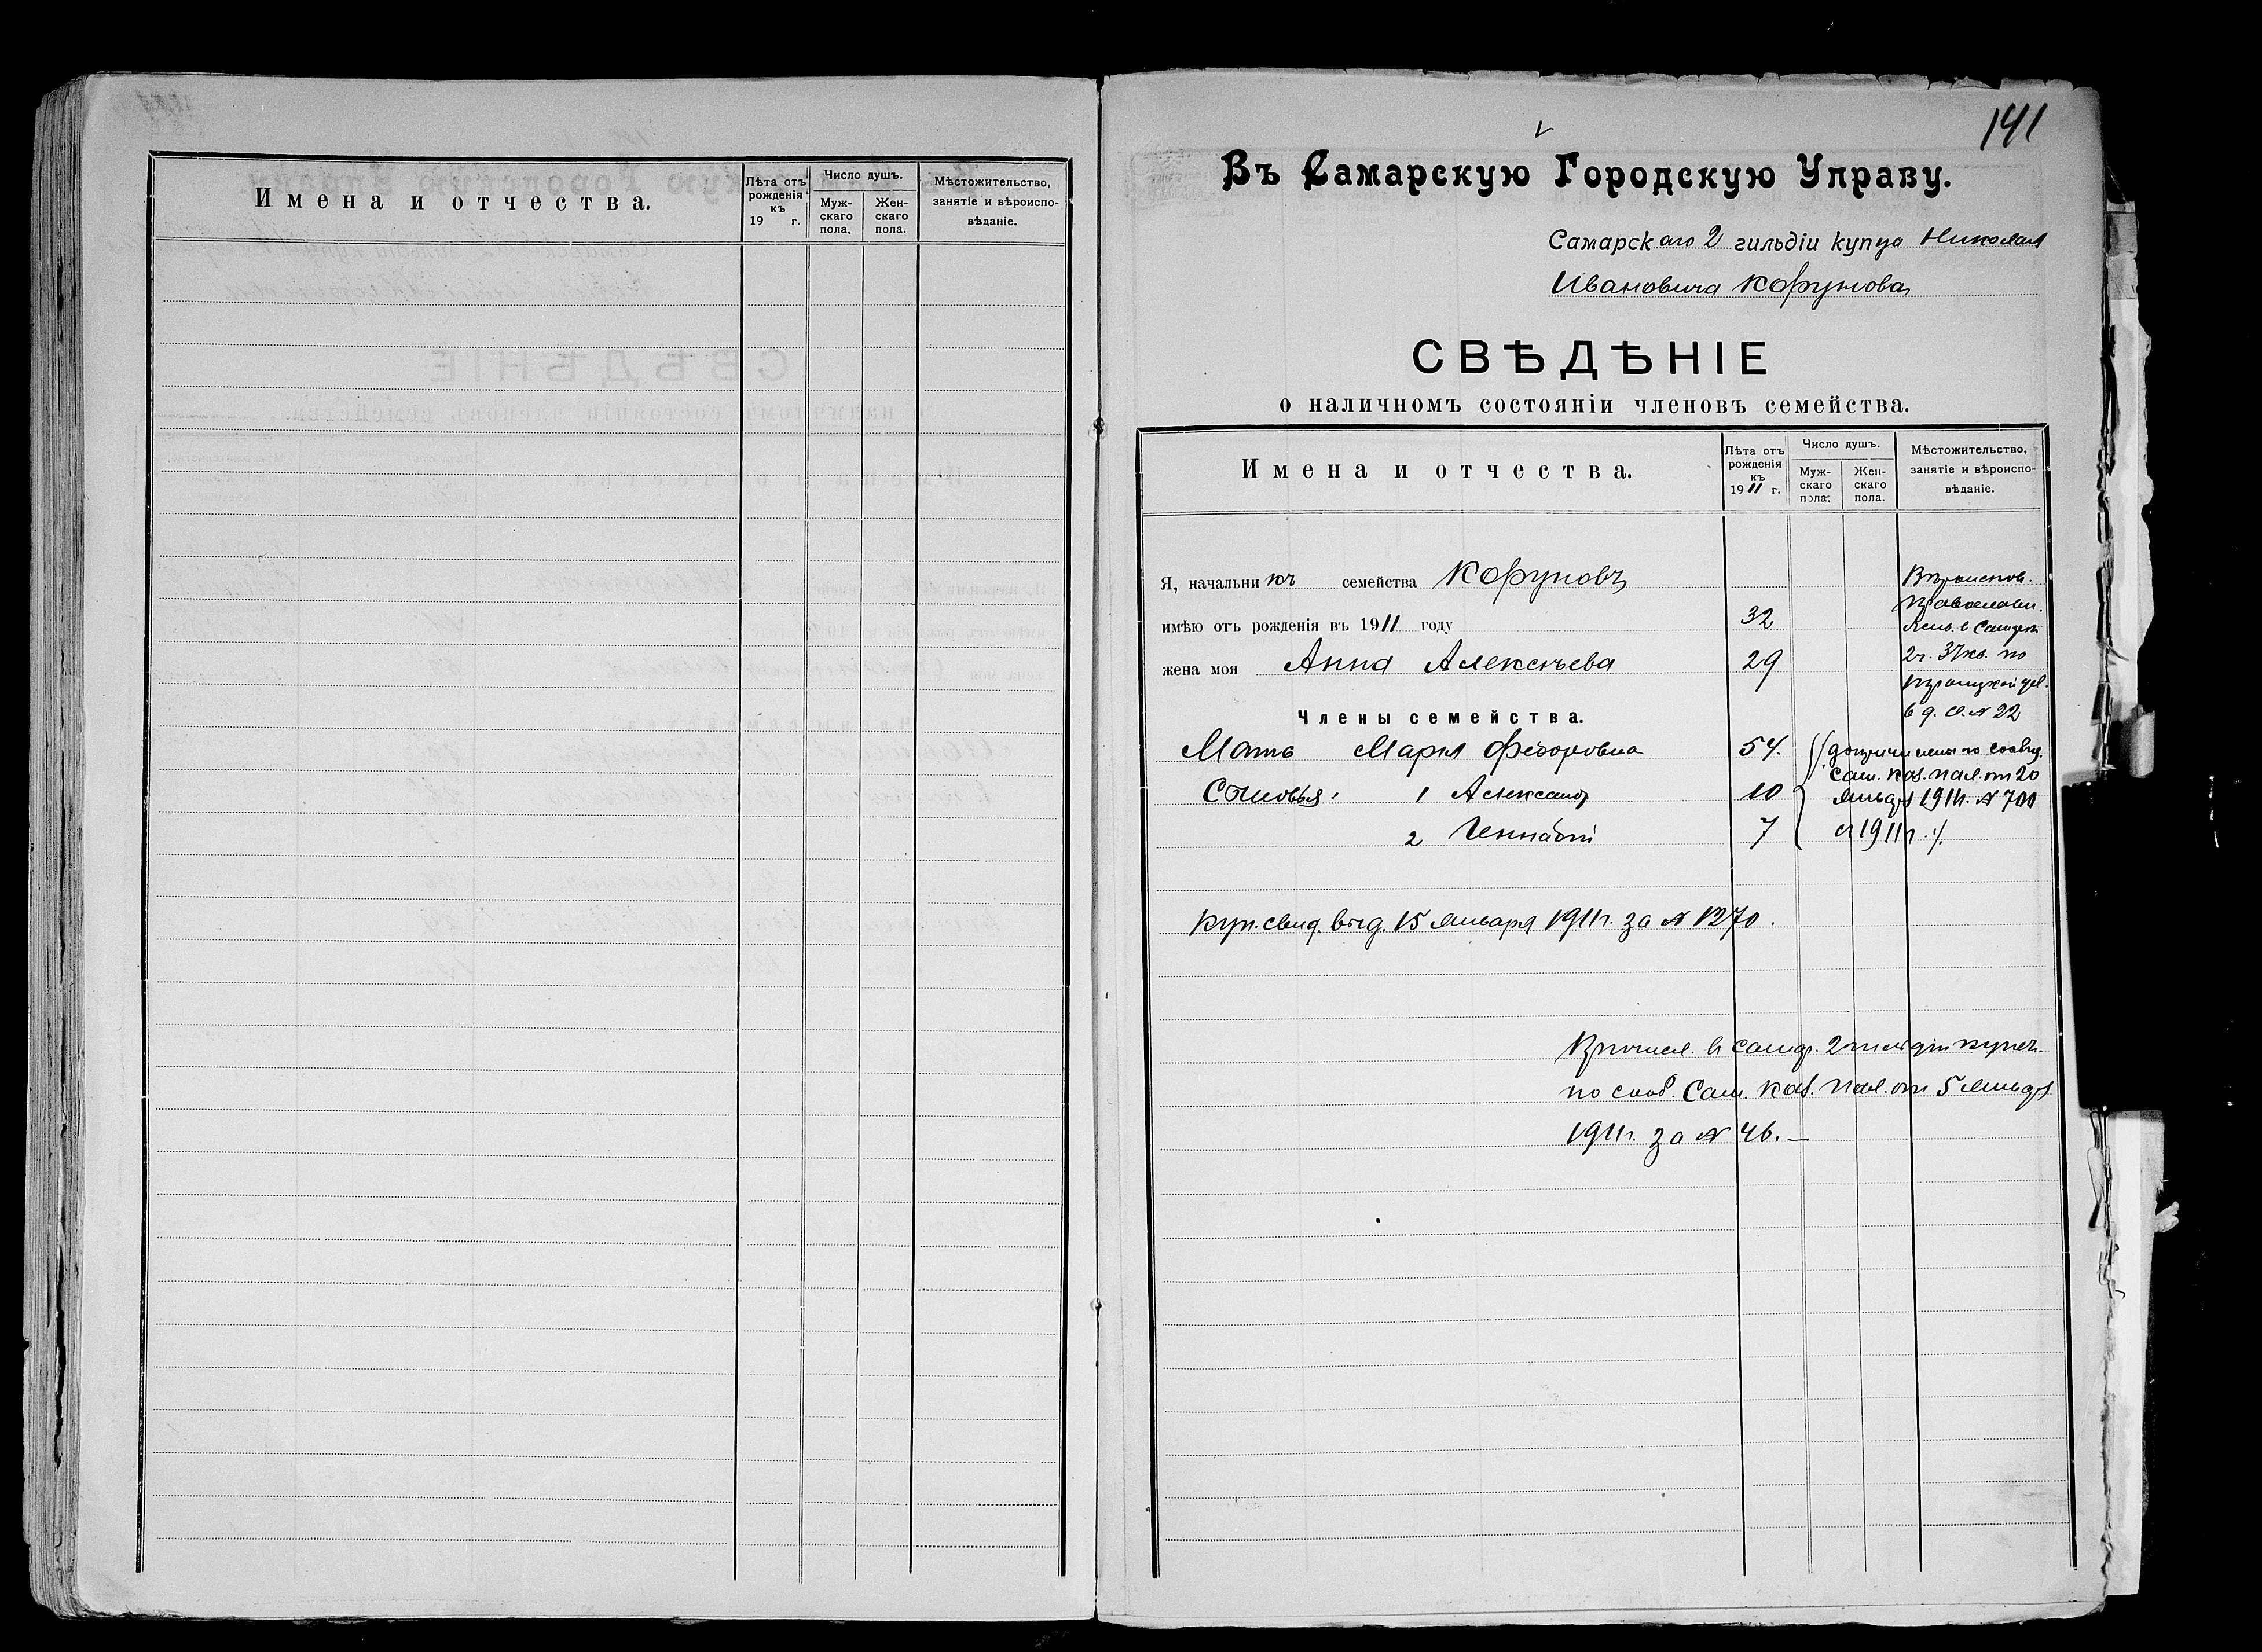 Имена и отчества.
Лѣта отъ рожденія къ 19 г.
Число душъ.
Муж-скаго пола.
Жен-скаго пола.
Мѣстожительство, занятіе и вѣроиспо-вѣданіе.
141
Въ Самарскую Городскую Управу.
Самарскаго 2 гильдіи купца Николая
Ивановича Корунова
СВѢДѢНІЕ
о наличномъ состояніи членовъ семейства.
Имена и отчества.
Лѣта отъ рожденія къ 1911 г.
Число душъ.
Муж-скаго пола.
Жен-скаго пола.
Мѣстожительство, занятіе и вѣроиспо-вѣданіе.
Я, начальникъ семейства Коруновъ
имѣю отъ рожденія въ 1911 году 32
жена моя Анна Алексѣева 29
Вѣроиспов.
Православн.
2ч. 37 кв. по
в д. с. № 22
Члены семейства.
Мать Марья Федоровна 54.
Сыновья: 1 Александр 10
2 Геннадій 7
Сам. Каз. Пал. от 20
Января 1911г. № 700
с 1911 г.
Куп. свид. выд. 15 Января 1911г. за № 1270.
в Самар. 2 гильдіи купеч.
по сооб. Сам. Каз. Пал. от 5 Января
1911г. за № 46. —